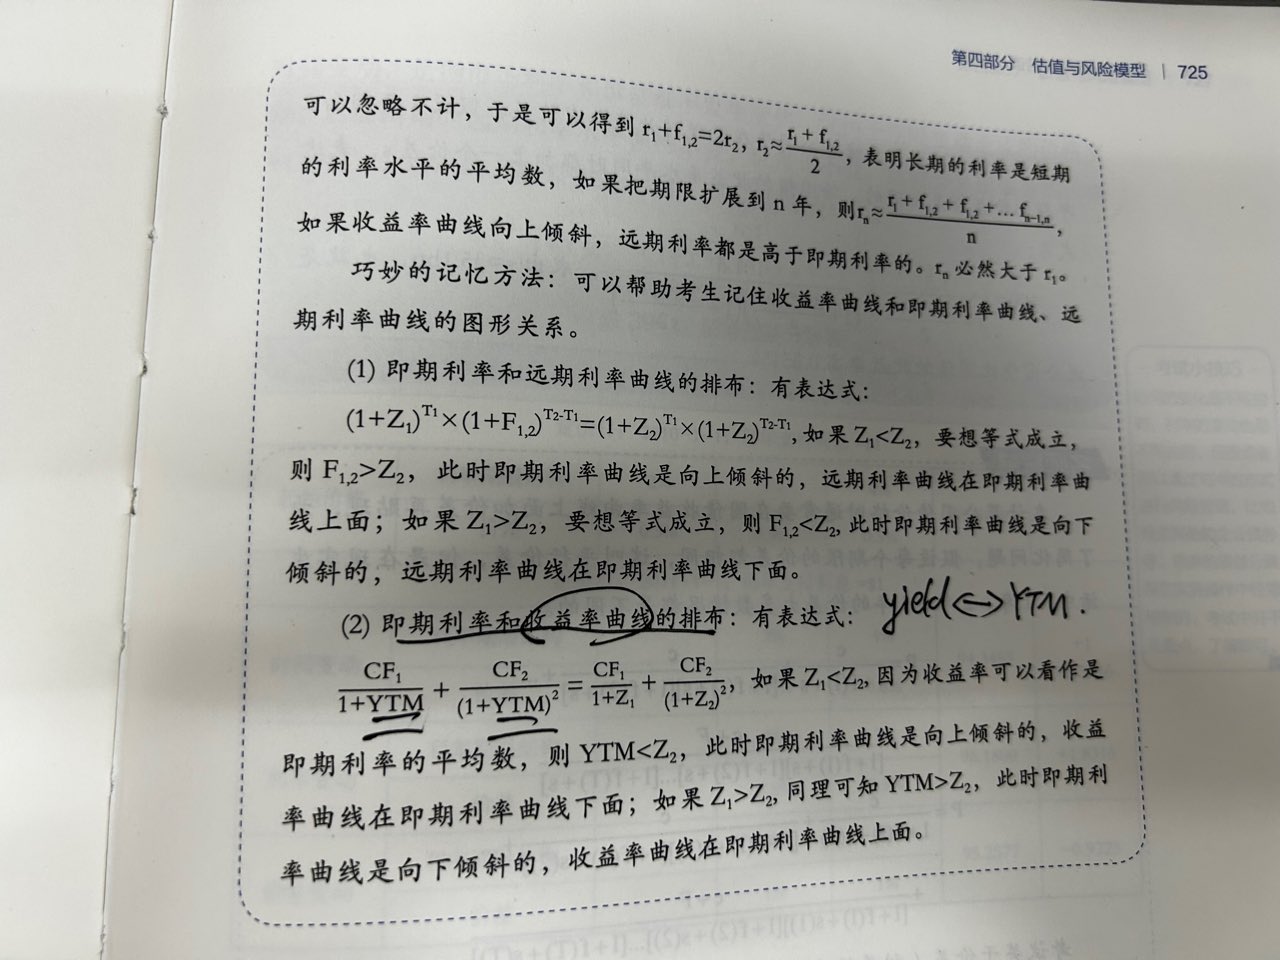 第四部分 估值与风险模型 | 725
可以忽略不计，于是可以得到 r₁+f₁,₂=2r₂, r₂≈(r₁+f₁,₂)/2，表明长期的利率是短期
的利率水平的平均数，如果把期限扩展到 n 年，则rₙ≈(r₁+f₁,₂+f₁,₂+…fₙ₋₁,ₙ)/n，
如果收益率曲线向上倾斜，远期利率都是高于即期利率的。rₙ 必然大于 r₁。
巧妙的记忆方法：可以帮助考生记住收益率曲线和即期利率曲线、远
期利率曲线的图形关系。
(1) 即期利率和远期利率曲线的排布：有表达式：
(1+Z₁)^T₁×(1+F₁,₂)^(T₂-T₁)=(1+Z₂)^T₁×(1+Z₂)^(T₂-T₁), 如果 Z₁<Z₂，要想等式成立，
则 F₁,₂>Z₂，此时即期利率曲线是向上倾斜的，远期利率曲线在即期利率曲
线上面；如果 Z₁>Z₂，要想等式成立，则 F₁,₂<Z₂, 此时即期利率曲线是向下
倾斜的，远期利率曲线在即期利率曲线下面。
(2) 即期利率和收益率曲线的排布：有表达式： yield<->YTM.
CF₁/(1+YTM) + CF₂/(1+YTM)² = CF₁/(1+Z₁) + CF₂/(1+Z₂)²，如果 Z₁<Z₂, 因为收益率可以看作是
即期利率的平均数，则 YTM<Z₂，此时即期利率曲线是向上倾斜的，收益
率曲线在即期利率曲线下面；如果 Z₁>Z₂, 同理可知 YTM>Z₂，此时即期利
率曲线是向下倾斜的，收益率曲线在即期利率曲线上面。